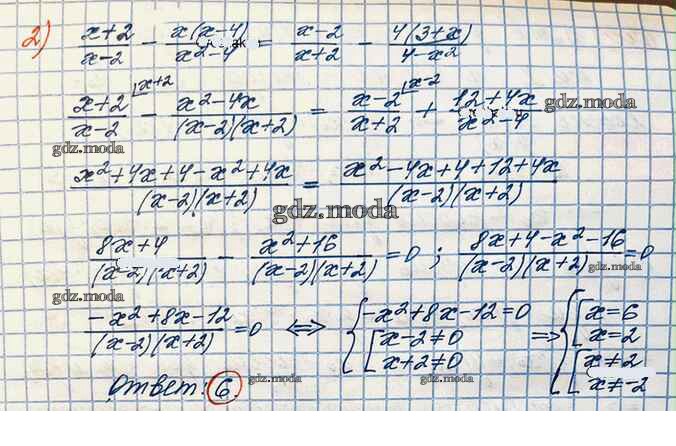 2) (x+2)/(x-2) - x(x-4)/(x²-4) = (x-2)/(x+2) - 4(3+x)/(4-x²)
(x+2)/(x-2) ⌈x+2 - (x²-4x)/((x-2)(x+2)) = (x-2)/(x+2) ⌈x-2 + (12+4x)/(x²-4) gdz.moda
gdz.moda
(x²+4x+4-x²+4x)/((x-2)(x+2)) = (x²-4x+4+12+4x)/((x-2)(x+2))
gdz.moda
(8x+4)/((x-2)(x+2)) - (x²+16)/((x-2)(x+2)) = 0 ; (8x+4-x²-16)/((x-2)(x+2)) = 0
gdz.moda gdz.moda
(-x²+8x-12)/((x-2)(x+2)) = 0 ⇔ { -x²+8x-12=0 [ x-2≠0 x+2≠0 ⇒ { [ x=6 x=2 [ x≠2 x≠-2
gdz.moda
Ответ: 6. gdz.moda gdz.moda